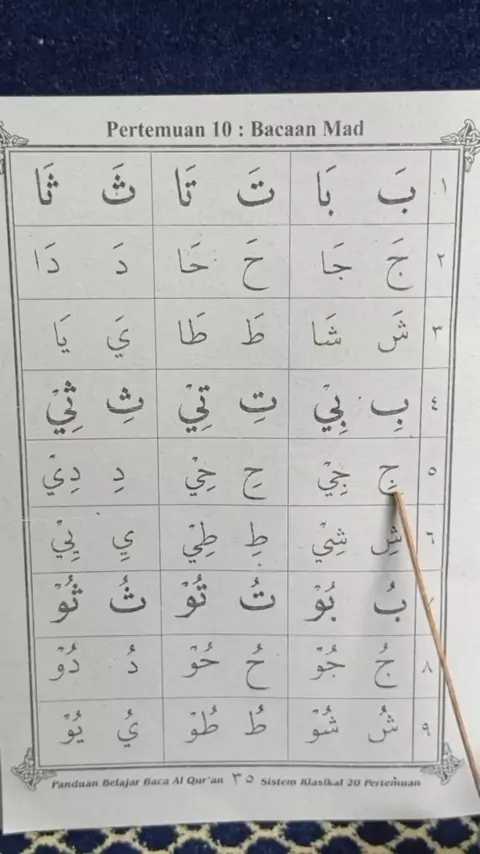 Pertemuan 10 : Bacaan Mad
١. بَ بَا تَ تَا ثَ ثَا
٢ جَ جَا حَ حَا دَ دَا
٣ شَ شَا طَ طَا يَ يَا
٤ بِ بِيْ تِ تِيْ ثِ ثِيْ
٥ جِ جِيْ حِ حِيْ دِ دِيْ
٦ شِ شِيْ طِ طِيْ يِ يِيْ
٧ بُ بُوْ تُ تُوْ ثُ ثُوْ
٨ جُ جُوْ حُ حُوْ دُ دُوْ
٩ شُ شُوْ طُ طُوْ يُ يُوْ
Panduan Belajar Baca Al Qur'an ٣٥ Sistem Klasikal 20 Pertemuan